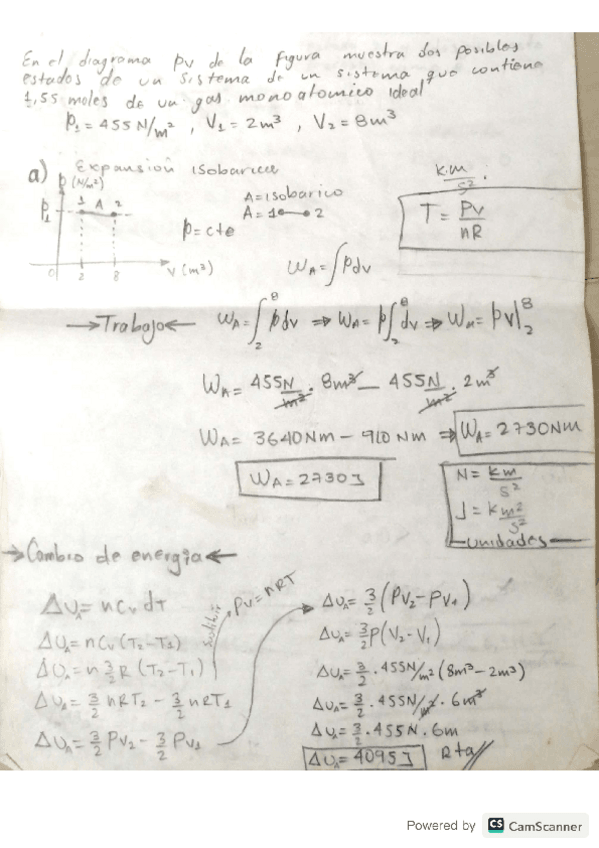 En el diagrama pv de la figura muestra dos posibles
estados de un sistema de un sistema que contiene
1,55 moles de un gas monoatomico ideal
P₁ = 455 N/m² , V₁ = 2m³ , V₂ = 8m³
a) Expansión isobarica
P (N/m²)
P₁
1 A 2
0 2 8 V (m³)
A = isobarico
A = 1 2
P = cte
K.m/s².
T = PV/nR
W_A = ∫Pdv
→Trabajo← W_A = ∫₂⁸ Pdv ⇒ W_A = P∫₂⁸ dv ⇒ W_A = PV|₂⁸
W_A = 455 N/m² . 8m³ – 455 N/m² . 2m³
W_A = 3640 Nm – 910 Nm ⇒ W_A = 2730 Nm
W_A = 2730 J
N = km/s²
J = k m²/s²
unidades
→Cambio de energia←
ΔU_A = n Cv dT
ΔU_A = n Cv (T₂ – T₁)
ΔU_A = n 3/2 R (T₂ – T₁)
ΔU_A = 3/2 nRT₂ – 3/2 nRT₁
ΔU_A = 3/2 PV₂ – 3/2 PV₁
PV = nRT
ΔU_A = 3/2 (PV₂ – PV₁)
ΔU_A = 3/2 P(V₂ – V₁)
ΔU_A = 3/2 . 455 N/m² (8m³ – 2m³)
ΔU_A = 3/2 . 455 N/m² . 6m³
ΔU_A = 3/2 . 455 N . 6m
ΔU_A = 4095 J Rta//
Powered by CS CamScanner